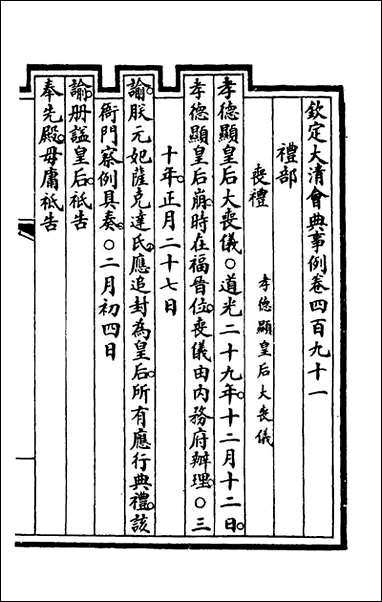 欽定大清會典事例卷四百九十一
禮部
喪禮 孝德顯皇后大喪儀
孝德顯皇后大喪儀○道光二十九年。十二月十二日。
孝德顯皇后崩。時在福晉位。喪儀由內務府辦理。○三
十年。正月二十七日
諭。朕元妃薩克達氏。應追封為皇后。所有應行典禮。該
衙門察例具奏。○二月初四日
諭。冊諡皇后。祗告
奉先殿。毋庸祗告